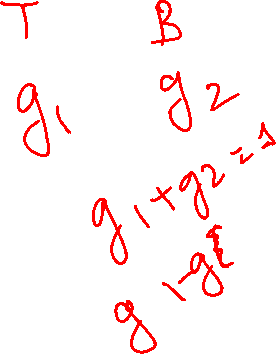 T B
g1 g2
g1+g2=s
g1-g